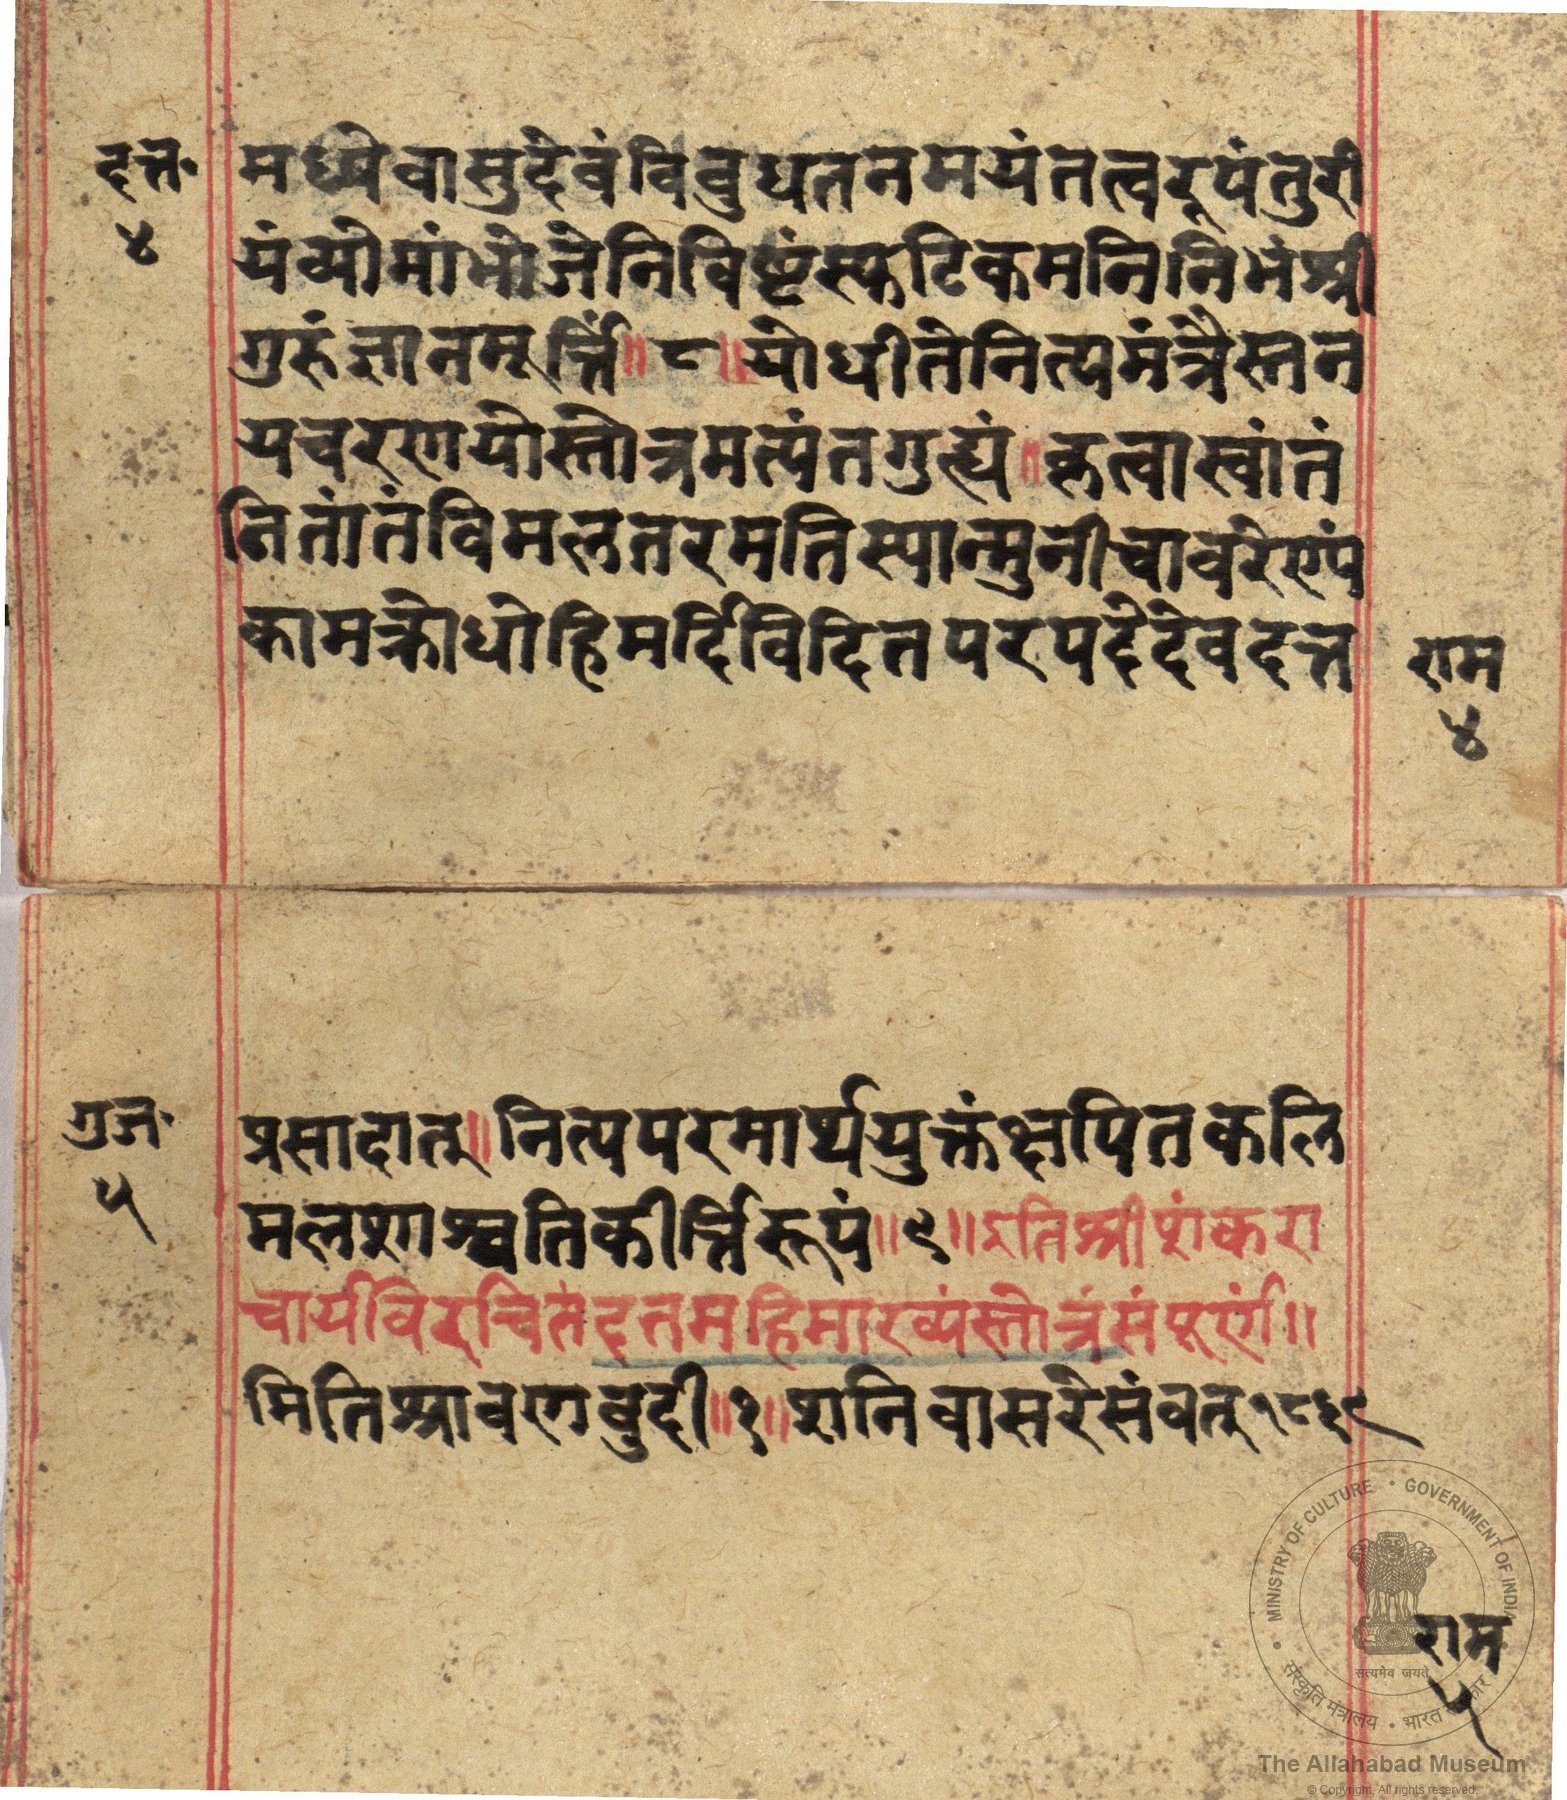 दत्त॰
४
मध्येवासुदेवंविबुधतनमयंतत्वरूपंतुरी
यंव्योमांभोजेनिविष्टंस्फटिकमनिनिभंश्री
गुरुंज्ञानमूर्त्तिं॥८॥योधीतेनित्यमंत्रैस्तन
यचरणयोस्तोत्रमत्यंतगुह्यं॥कृत्वास्वांतं
नितांतंविमलतरमतिस्यान्मुनीचावरेण्यं
कामक्रोधोहिमर्दिविदितपरपदेदेवदत्त
राम
४
गुज॰
५
प्रसादात्॥नित्यपरमार्थयुक्तंक्षपितकलि
मलशाश्वतिकीर्त्तिरूपं॥९॥इतिश्रीशंकरा
चार्यविरचितंदत्तमहिमाख्यंस्तोत्रंसंपूर्णं॥
मितिश्रावणबुदी॥१॥शनिवासरेसंवत्१८३९
राम
५
MINISTRY OF CULTURE · GOVERNMENT OF INDIA
सत्यमेव जयते
संस्कृति मंत्रालय · भारत सरकार
The Allahabad Museum
© Copyright, All rights reserved.